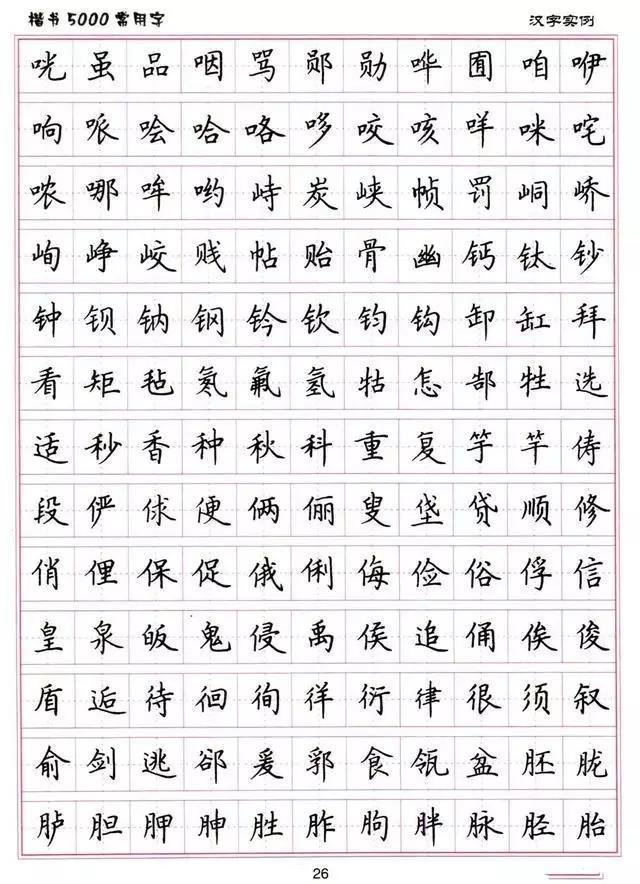 楷书5000常用字 汉字实例
咣虽品咽骂郧勋哗囿咱咿
响哌哙哈咯哆咬咳咩咪咤
哝哪哞哟峙炭峡帧罚峒峤
峋峥峧贱帖贻骨幽钙钛钞
钟钡钠钢钤钦钧钩卸缸拜
看矩毡氡氟氢牯怎郜牲选
适秒香种秋科重复竽竿俦
段俨俅便俩俪叟垡贷顺修
俏俚保促俄俐侮俭俗俘信
皇泉皈鬼侵禹侯追俑俟俊
盾逅待徊徇徉衍律很须叙
俞剑逃郤爰郛食瓴盆胚胧
胪胆胛胂胜胙朐胖脉胫胎
26